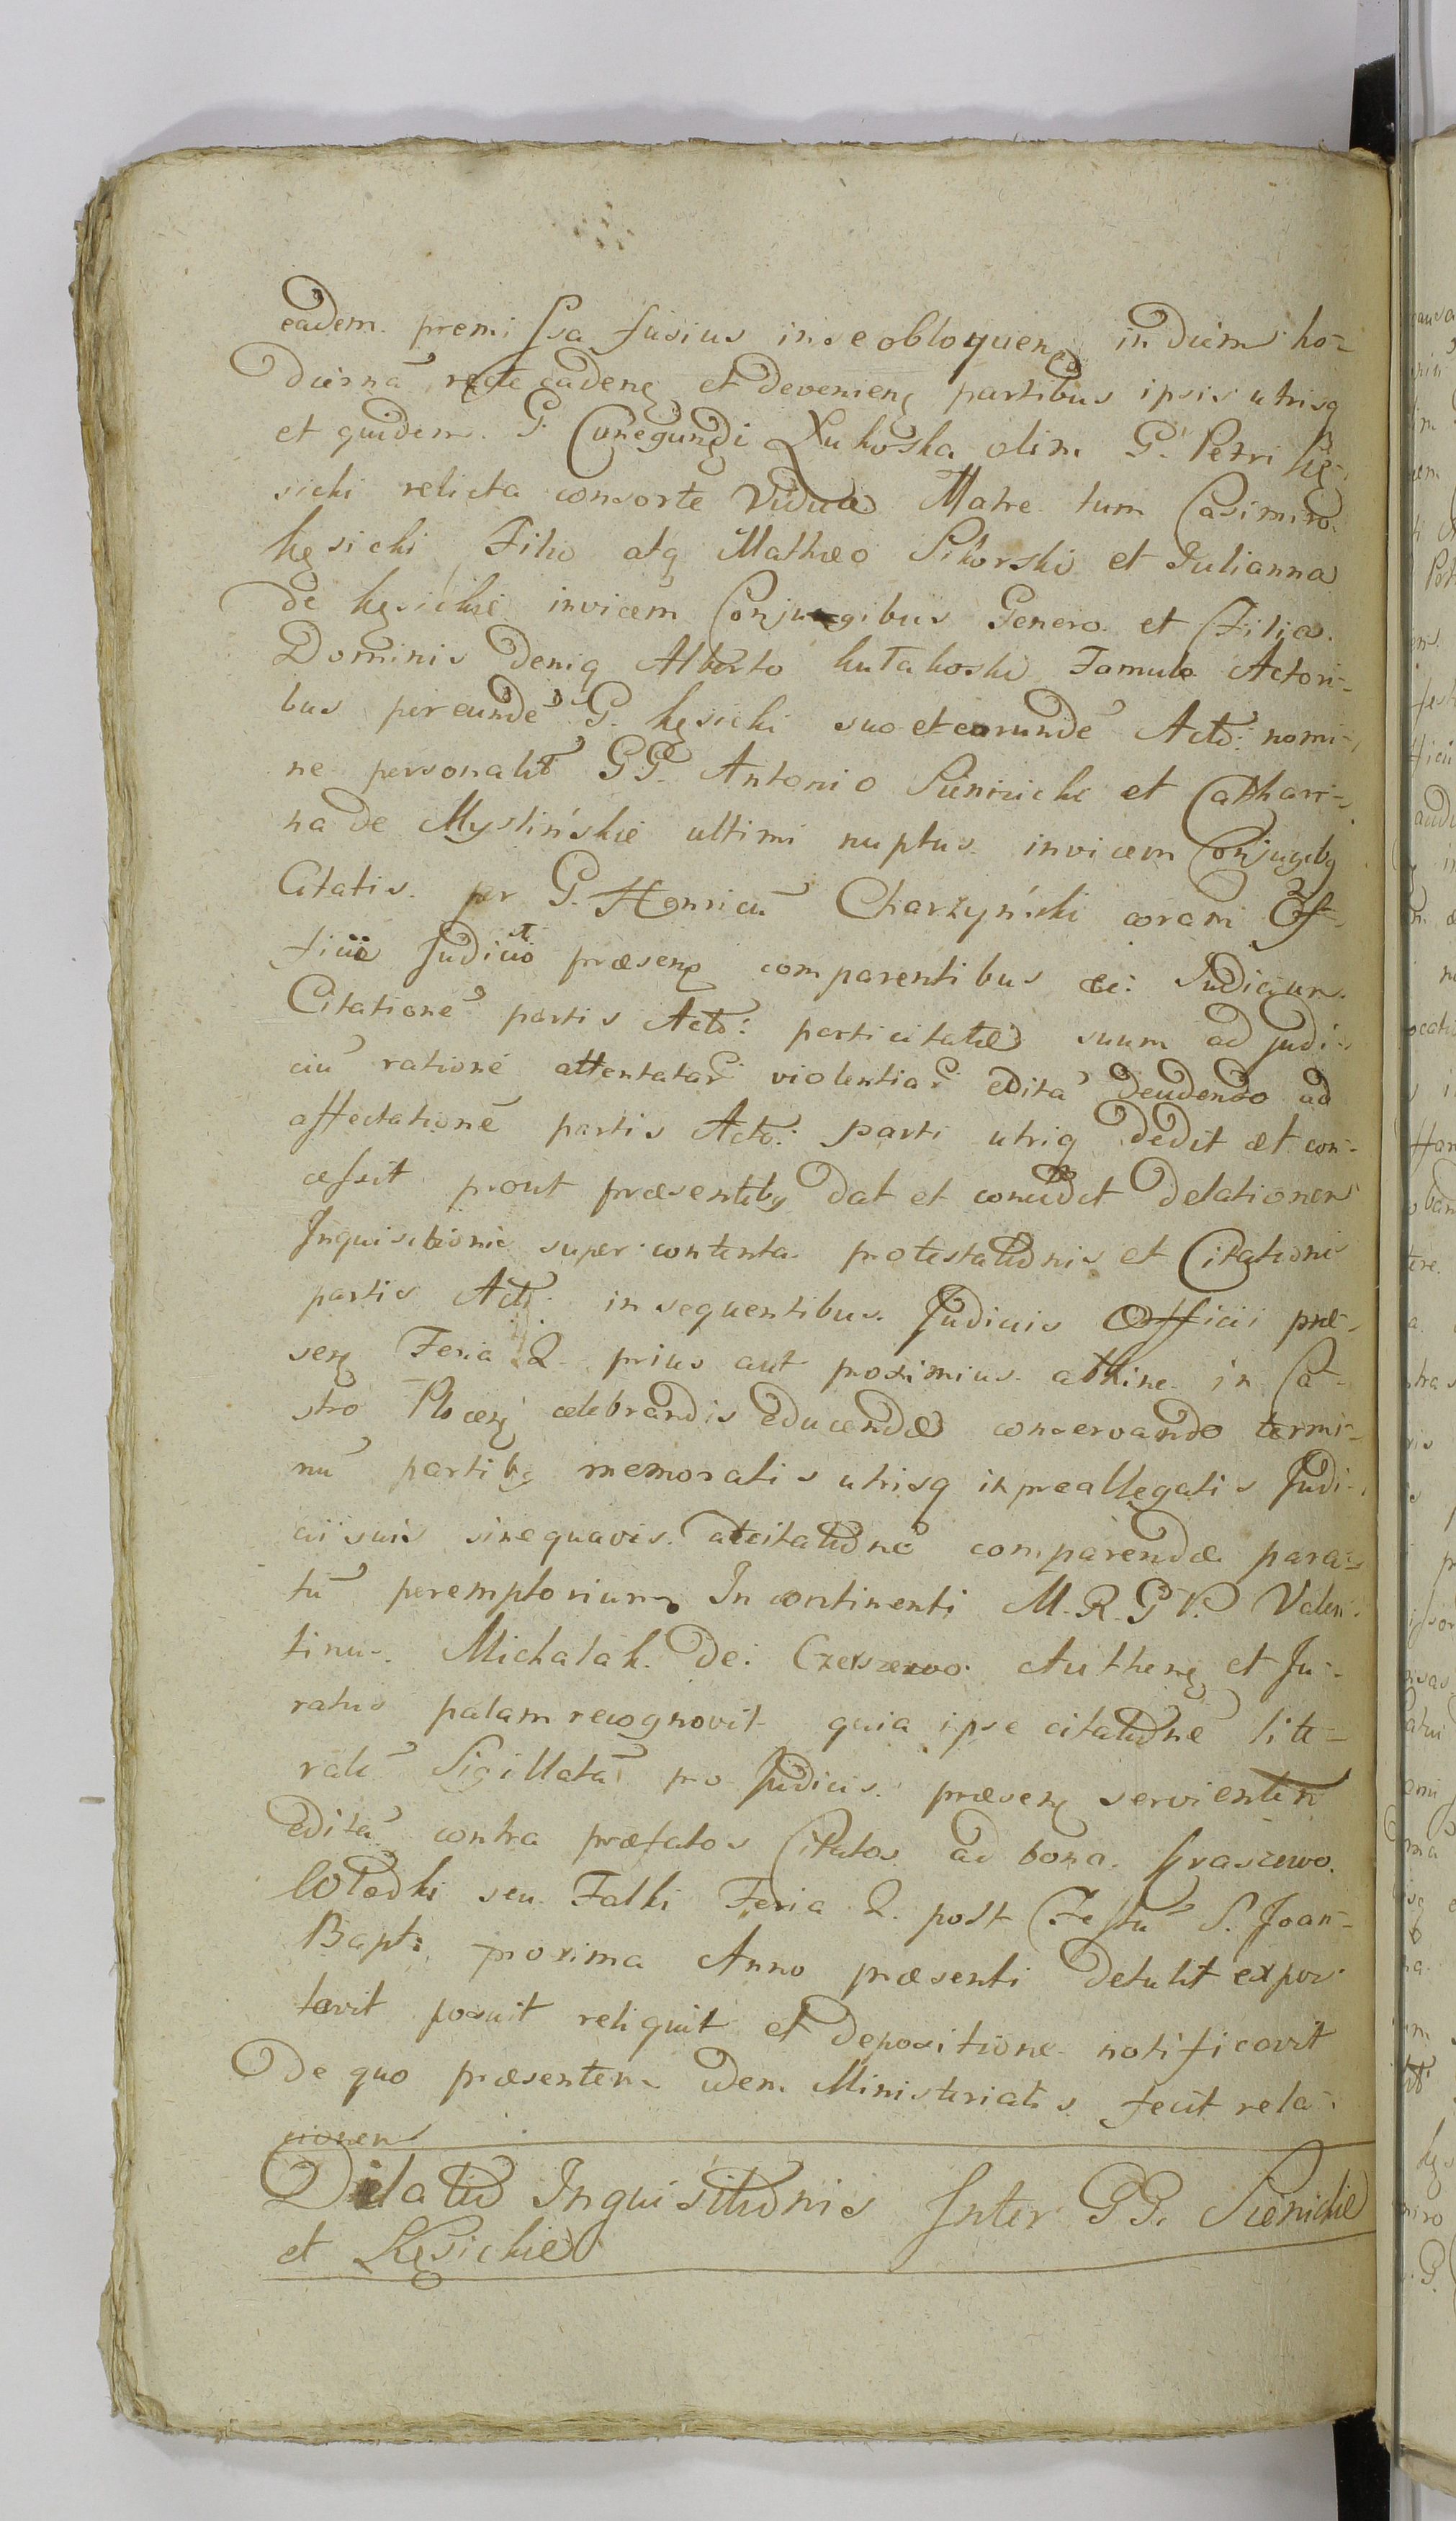 eadem premissa fusius in se obloquen in diem ho-
diernã recte caden et devenien partibus ipsis utrisq
et quidem G. Cunegundi Łukoska olim G. Petri Kę-
sicki relicta consorte Vidua Matre tum Casimiro
Kęsicki Filio atq Mathæo Sikorski et Julianna
de Kęsickie invicem Conjugibus Genero et Filia
Dominis deniq Alberto Kułakoski Famulo Actori-
bus per eundẽ G. Kęsicki suo et eorundẽ Acto: nomi-
ne personalit GG. Antonio Sienicki et Cathari-
na de Myslińskie ultimi nuptus invicem Conjugibq
Citatis per G. Henricũ Charzyński coram Of-
ficio Judicio præsen comparentibus &: Judicium
Citationẽ partis Acto: parti citatæ suum ad judi-
ciũ rationẽ attentatar violentiar editã deudendo ad
affectationẽ partis Acto: parti utriq dedit et con-
cessit prout præsentibq dat et concedit delationem
Inquisitionis super contenta protestationis et Citationis
partis Acto: in sequentibus Judiciis Officii præ-
sen Feria 2 prius aut proximius abhinc in Ca-
stro Plocen celebrandis educendæ conservando termi-
nũ partibq memoratis utrisq in præallegatis Judi-
ciis suis sine quavis adcitationẽ comparendæ para-
tũ peremptorium. In continenti M. R. G. V. Valen-
tinus Michalak de Czerszewo Authen et Ju-
ratus palam recognovit quia ipse citationẽ lite-
ralẽ Sigillatã pro Judiciis præsen servientem
editã contra præfatos Citatos ad bona Kraszewo
Wladki seu Falki Feria 2. post Festũ S. Joan-
Bapt: proxima Anno præsenti detulit expor-
tavit posuit reliquit et depositione notificavit
De quo præsentem idem Ministerialis fecit rela-
cionem
Dilatio Inquisitionis Inter GG. Sienickie
et Kęsickie